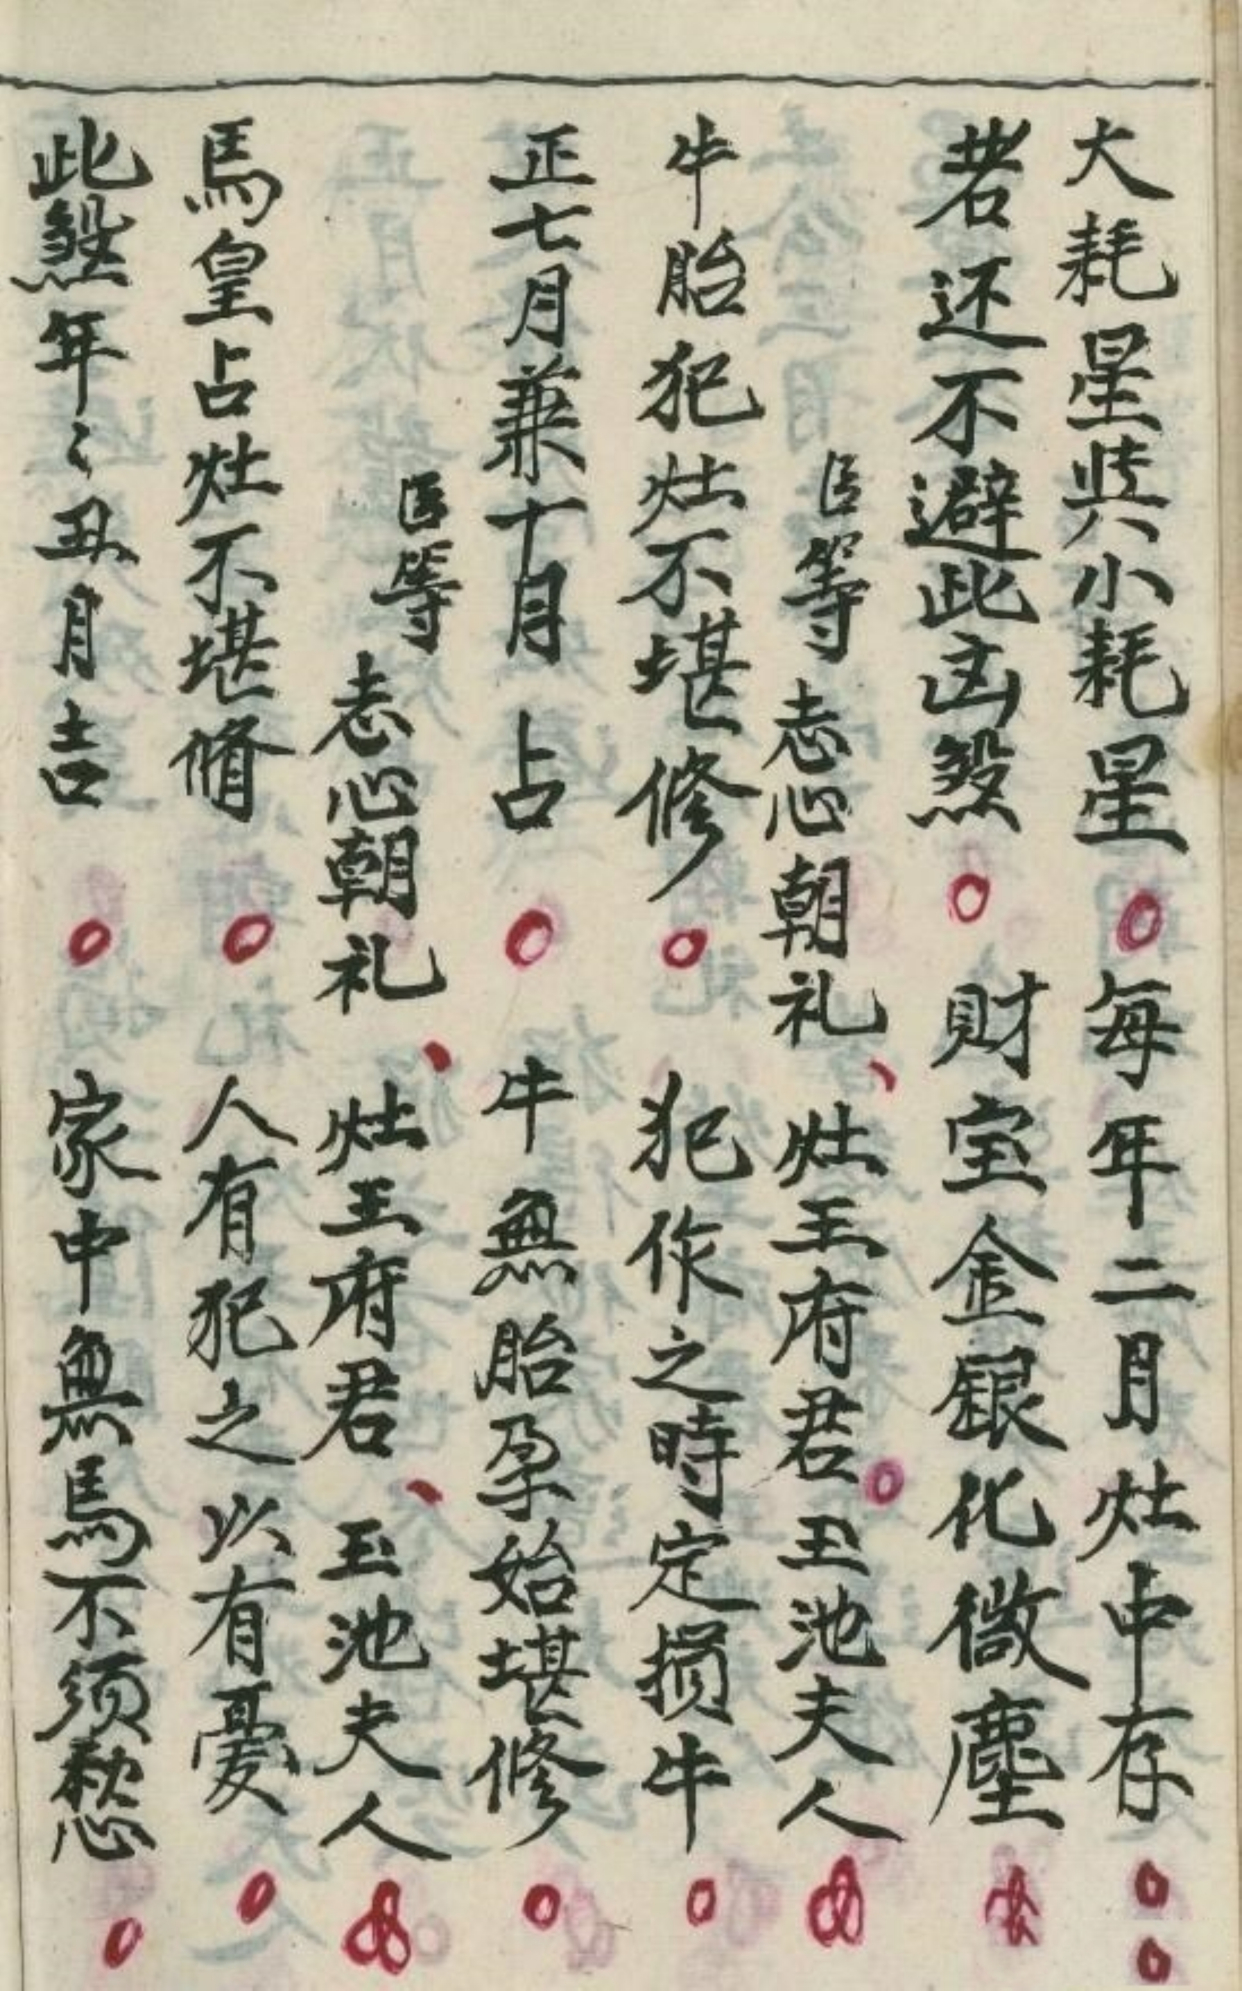 大耗星共小耗星 每年二月灶中存
若还不避此凶煞 財宝金銀化微塵
臣等 志心朝礼 灶王府君 玉池夫人
牛胎犯灶不堪修 犯作之時定損牛
正七月兼十月占 牛無胎孕始堪修
臣等 志心朝礼 灶王府君 玉池夫人
馬皇占灶不堪脩 人有犯之以有憂
此煞年〻丑月吉 家中無馬不須愁